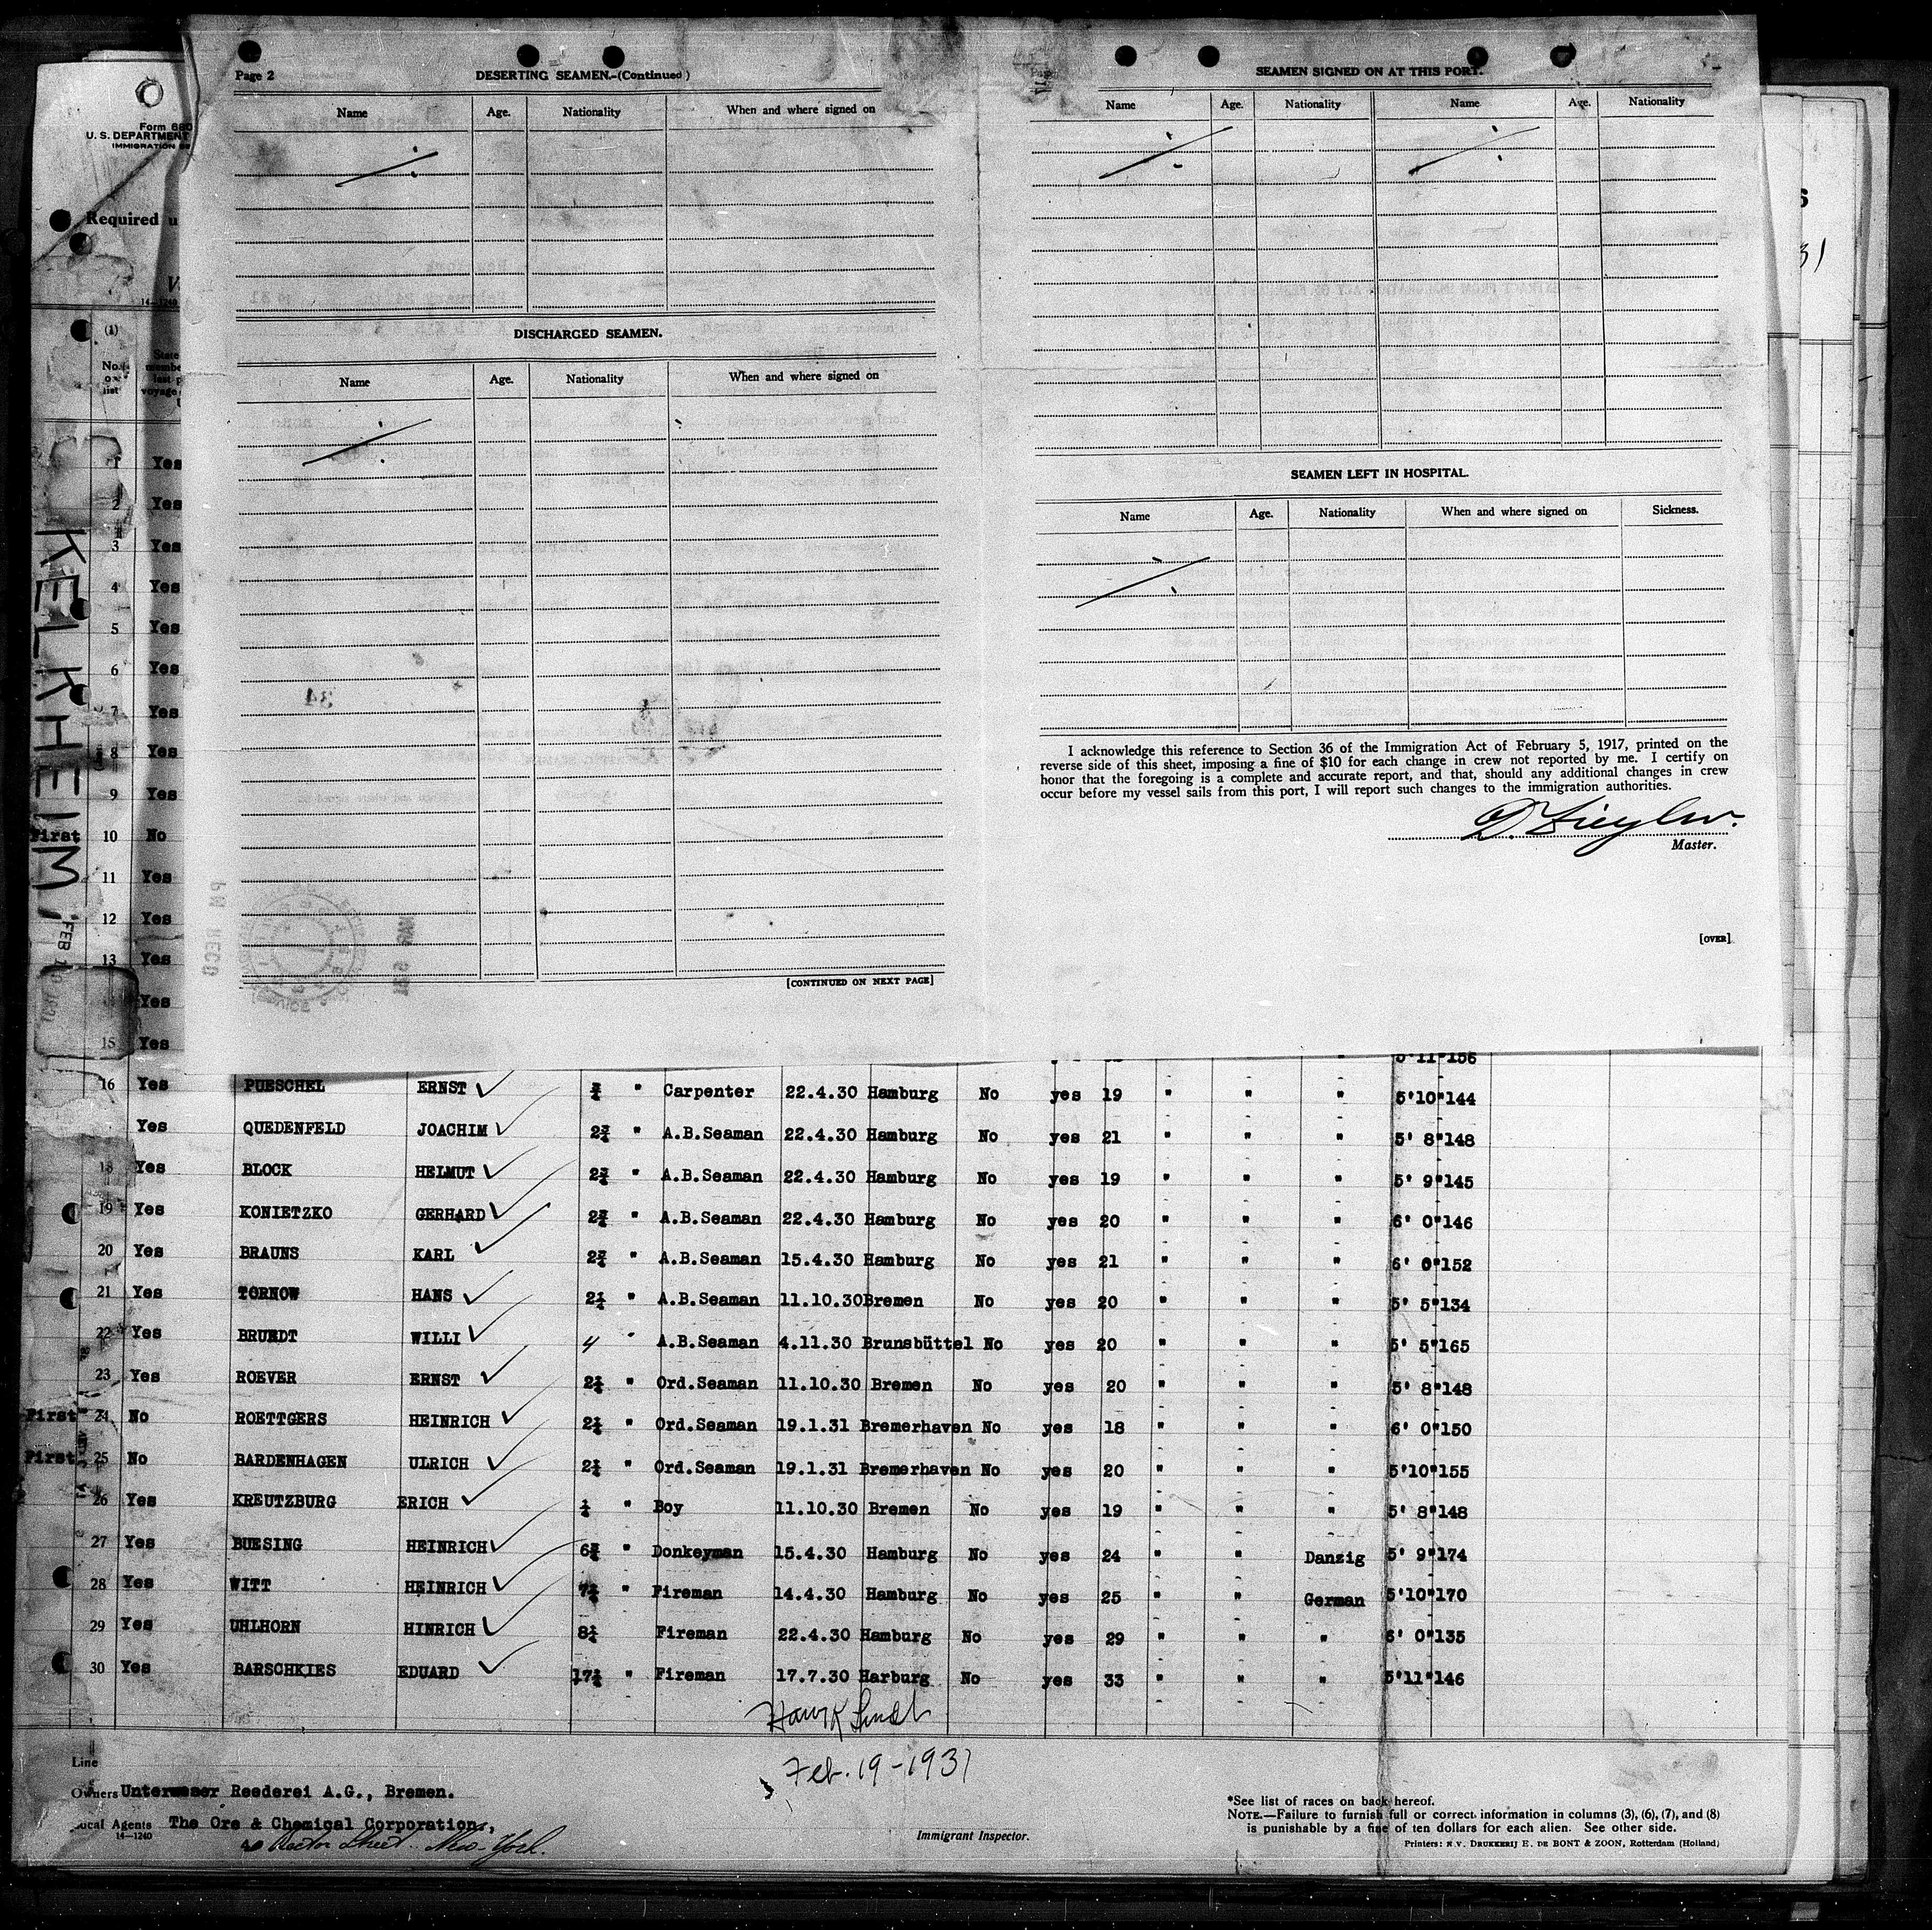 Page 2
DESERTING SEAMEN.-(Continued)
Name Age. Nationality When and where signed on
DISCHARGED SEAMEN.
Name Age. Nationality When and where signed on
[CONTINUED ON NEXT PAGE]
SEAMEN SIGNED ON AT THIS PORT.
Name Age. Nationality Name Age. Nationality
SEAMEN LEFT IN HOSPITAL.
Name Age. Nationality When and where signed on Sickness.
I acknowledge this reference to Section 36 of the Immigration Act of February 5, 1917, printed on the
reverse side of this sheet, imposing a fine of $10 for each change in crew not reported by me. I certify on
honor that the foregoing is a complete and accurate report, and that, should any additional changes in crew
occur before my vessel sails from this port, I will report such changes to the immigration authorities.
D. Ziegler.
Master.
[OVER]
Form 680
U. S. DEPARTMENT
IMMIGRATION
Required u
14-1240
(1)
No. on list
State
KELKHEIM,
1 Yes
2 Yes
3 Yes
4 Yes
5 Yes
6 Yes
7 Yes
8 Yes
9 Yes
First 10 No
11 Yes
12 Yes
13 Yes
Yes
15 Yes
5'11"156
16 Yes PUESCHEL ERNST " Carpenter 22.4.30 Hamburg No yes 19 " " " 5'10"144
Yes QUEDENFELD JOACHIM 2¾ " A.B.Seaman 22.4.30 Hamburg No yes 21 " " " 5' 8"148
18 Yes BLOCK HELMUT 2¾ " A.B.Seaman 22.4.30 Hamburg No yes 19 " " " 5' 9"145
19 Yes KONIETZKO GERHARD 2¾ " A.B.Seaman 22.4.30 Hamburg No yes 20 " " " 6' 0"146
20 Yes BRAUNS KARL 2¾ " A.B.Seaman 15.4.30 Hamburg No yes 21 " " " 6' 0"152
21 Yes TORNOW HANS 2¼ " A.B.Seaman 11.10.30 Bremen No yes 20 " " " 5' 5"134
22 Yes BRUEDT WILLI 4 " A.B.Seaman 4.11.30 Brunsbüttel No yes 20 " " " 5' 5"165
23 Yes ROEVER ERNST 2¼ " Ord.Seaman 11.10.30 Bremen No yes 20 " " " 5' 8"148
First 24 No ROETTGERS HEINRICH 2¼ " Ord.Seaman 19.1.31 Bremerhaven No yes 18 " " " 6' 0"150
First 25 No BARDENHAGEN ULRICH 2¼ " Ord.Seaman 19.1.31 Bremerhaven No yes 20 " " " 5'10"155
26 Yes KREUTZBURG ERICH " Boy 11.10.30 Bremen No yes 19 " " " 5' 8"148
27 Yes BUESING HEINRICH 6¾ " Donkeyman 15.4.30 Hamburg No yes 24 " " Danzig 5' 9"174
28 Yes WITT HEINRICH " Fireman 14.4.30 Hamburg No yes 25 " " German 5'10"170
29 Yes UHLHORN HINRICH " Fireman 22.4.30 Hamburg No yes 29 " " " 6' 0"135
30 Yes BARSCHKIES EDUARD " Fireman 17.7.30 Harburg No yes 33 " " " 5'11"146
Feb. 19-1931
Line
Owners Unterweser Reederei A.G., Bremen.
Local Agents The Ore & Chemical Corporation,
14-1240
40 Rector Street. New-York.
Immigrant Inspector.
*See list of races on back hereof.
NOTE.—Failure to furnish full or correct information in columns (3), (6), (7), and (8)
is punishable by a fine of ten dollars for each alien. See other side.
Printers: N.V. DRUKKERIJ E. DE BONT & ZOON, Rotterdam (Holland)